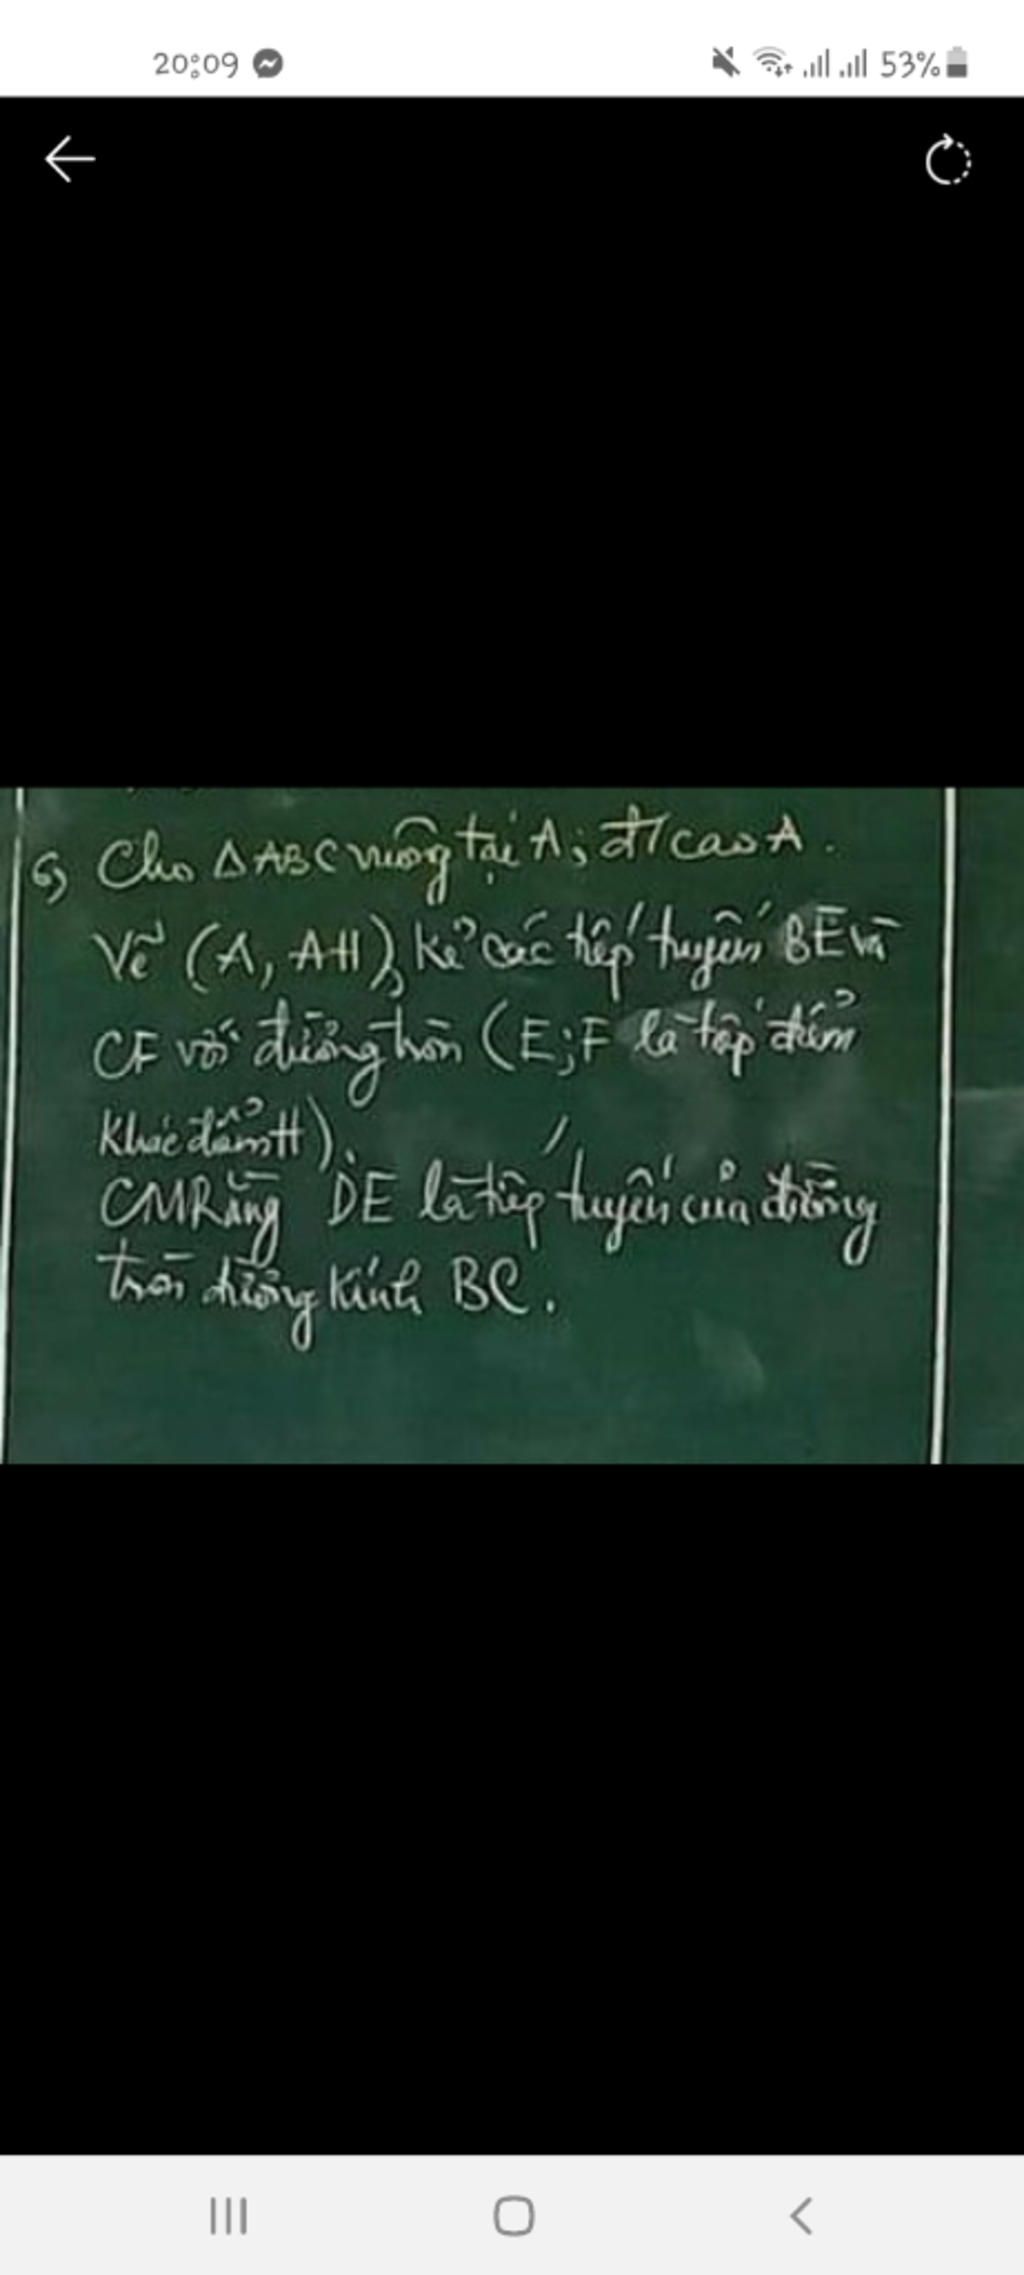 20:09 53%
6) Cho ΔABC vuông tại A; đ/cao A.
Vẽ (A, AH), kẻ các tiếp tuyến BE và
CF với đường tròn (E;F là tiếp điểm
khác điểm H).
CMRằng DE là tiếp tuyến của đường
tròn đường kính BC.